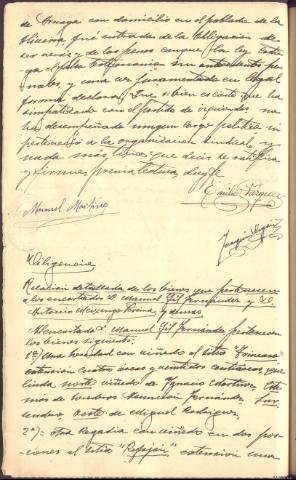 de Ornaga con domicilio en el poblado de la
Oliveira, fué enterado de la obligación de
ser veráz y de las penas conque la ley casti-
ga el falso testimonio sin antecedentes pe-
nales y una vez juramentado en legal
forma declara: Que si bien es cierto que ha
simpatizado con el partido de izquierdas no
ha desempeñado ningún cargo político ni
perteneció a la organización sindical, y
nada más tiene que decir se ratifica
y firma previa lectura, Doy fe
Emilio Vázquez
Manuel Martínez
Diligencia
Relación detallada de los bienes que pertenecen
a los encartados D. Manuel Gil Fernández y D.
Antonio
y demás
Al encartado D. Manuel Gil Fernández pertenecen
los bienes siguientes:
1ª) Una heredad con viñedo al sitio
extensión cuatro áreas y centiáreas, que
linda norte viñedo de Ignacio Martínez, Este
más de herederos Asunción Fernández, Sur
sendero, Oeste de Miguel Rodríguez.
2ª) = otra Regadía con viñedo en dos por-
ciones al sitio "Refojón" extensión una